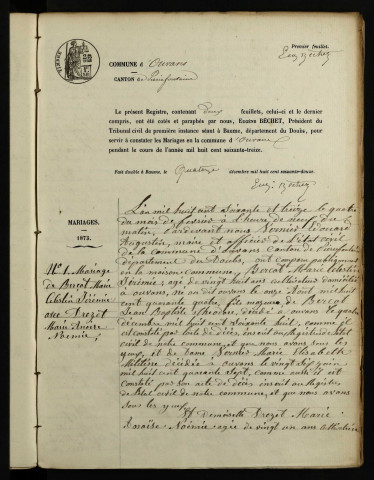 Premier feuillet.
COMMUNE d'Ouvans
CANTON de Pierrefontaine
Le présent Registre, contenant deux feuillets, celui-ci et le dernier
compris, ont été cotés et paraphés par nous, Euxène BECHET, Président du
Tribunal civil de première instance séant à Baume, département du Doubs, pour
servir à constater les Mariages en la commune d'Ouvans
pendant le cours de l'année mil huit cent soixante-treize.
Fait double à Baume, le Quatorze décembre mil huit cent soixante-douze.
MARIAGES.
1873.
N° 1. Mariage
de Bercot Marie
Célestin Séremie
avec Drezet
Marie
Noémie
L'an mil huit cent soixante et treize le quatre
du mois de février à l'heure de neuf du
matin, Pardevant nous Édouard
Augustin, maire et officier de l'état civil
de la commune d'Ouvans Canton de Pierrefontaine
département du Doubs, ont comparu publiquement
en la maison commune, Bercot Marie Célestin
âgé de vingt huit ans cultivateur domicilié
à ouvans, né au dit ouvans le onze Août mil huit
cent quarante quatre, fils majeur de Bercot
Jean Baptiste décédé à ouvans le quatre
décembre mil huit cent soixante huit, comme il
est constaté par acte de décès inscrit au Registre de l'état
civil de notre commune, et que nous avons sous les
yeux, et de Dame Marie Elisabeth
décédée à ouvans le vingt
mil huit cent quarante sept, comme aussi il est
constaté par son acte de décès inscrit au Registre
de l'état civil de notre commune, et que nous avons
sous les yeux
Et Demoiselle Drezet Marie
Noémie âgée de vingt un ans cultivatrice